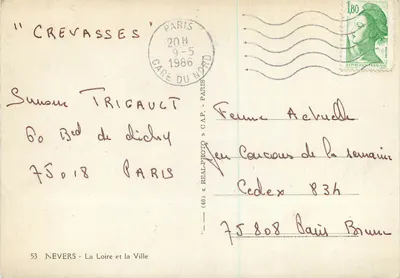 "CREVASSES"
PARIS
20H
9-5
1986
GARE DU NORD
1,80
Suzanne TRIGAULT
60 Bd de clichy
75018 PARIS
Femme Actuelle
Jeu Concours de la semaine
Cedex 834
75808 Paris Brune
(48) « REAL-PHOTO » C.A.P. - PARIS
53 NEVERS - La Loire et la Ville